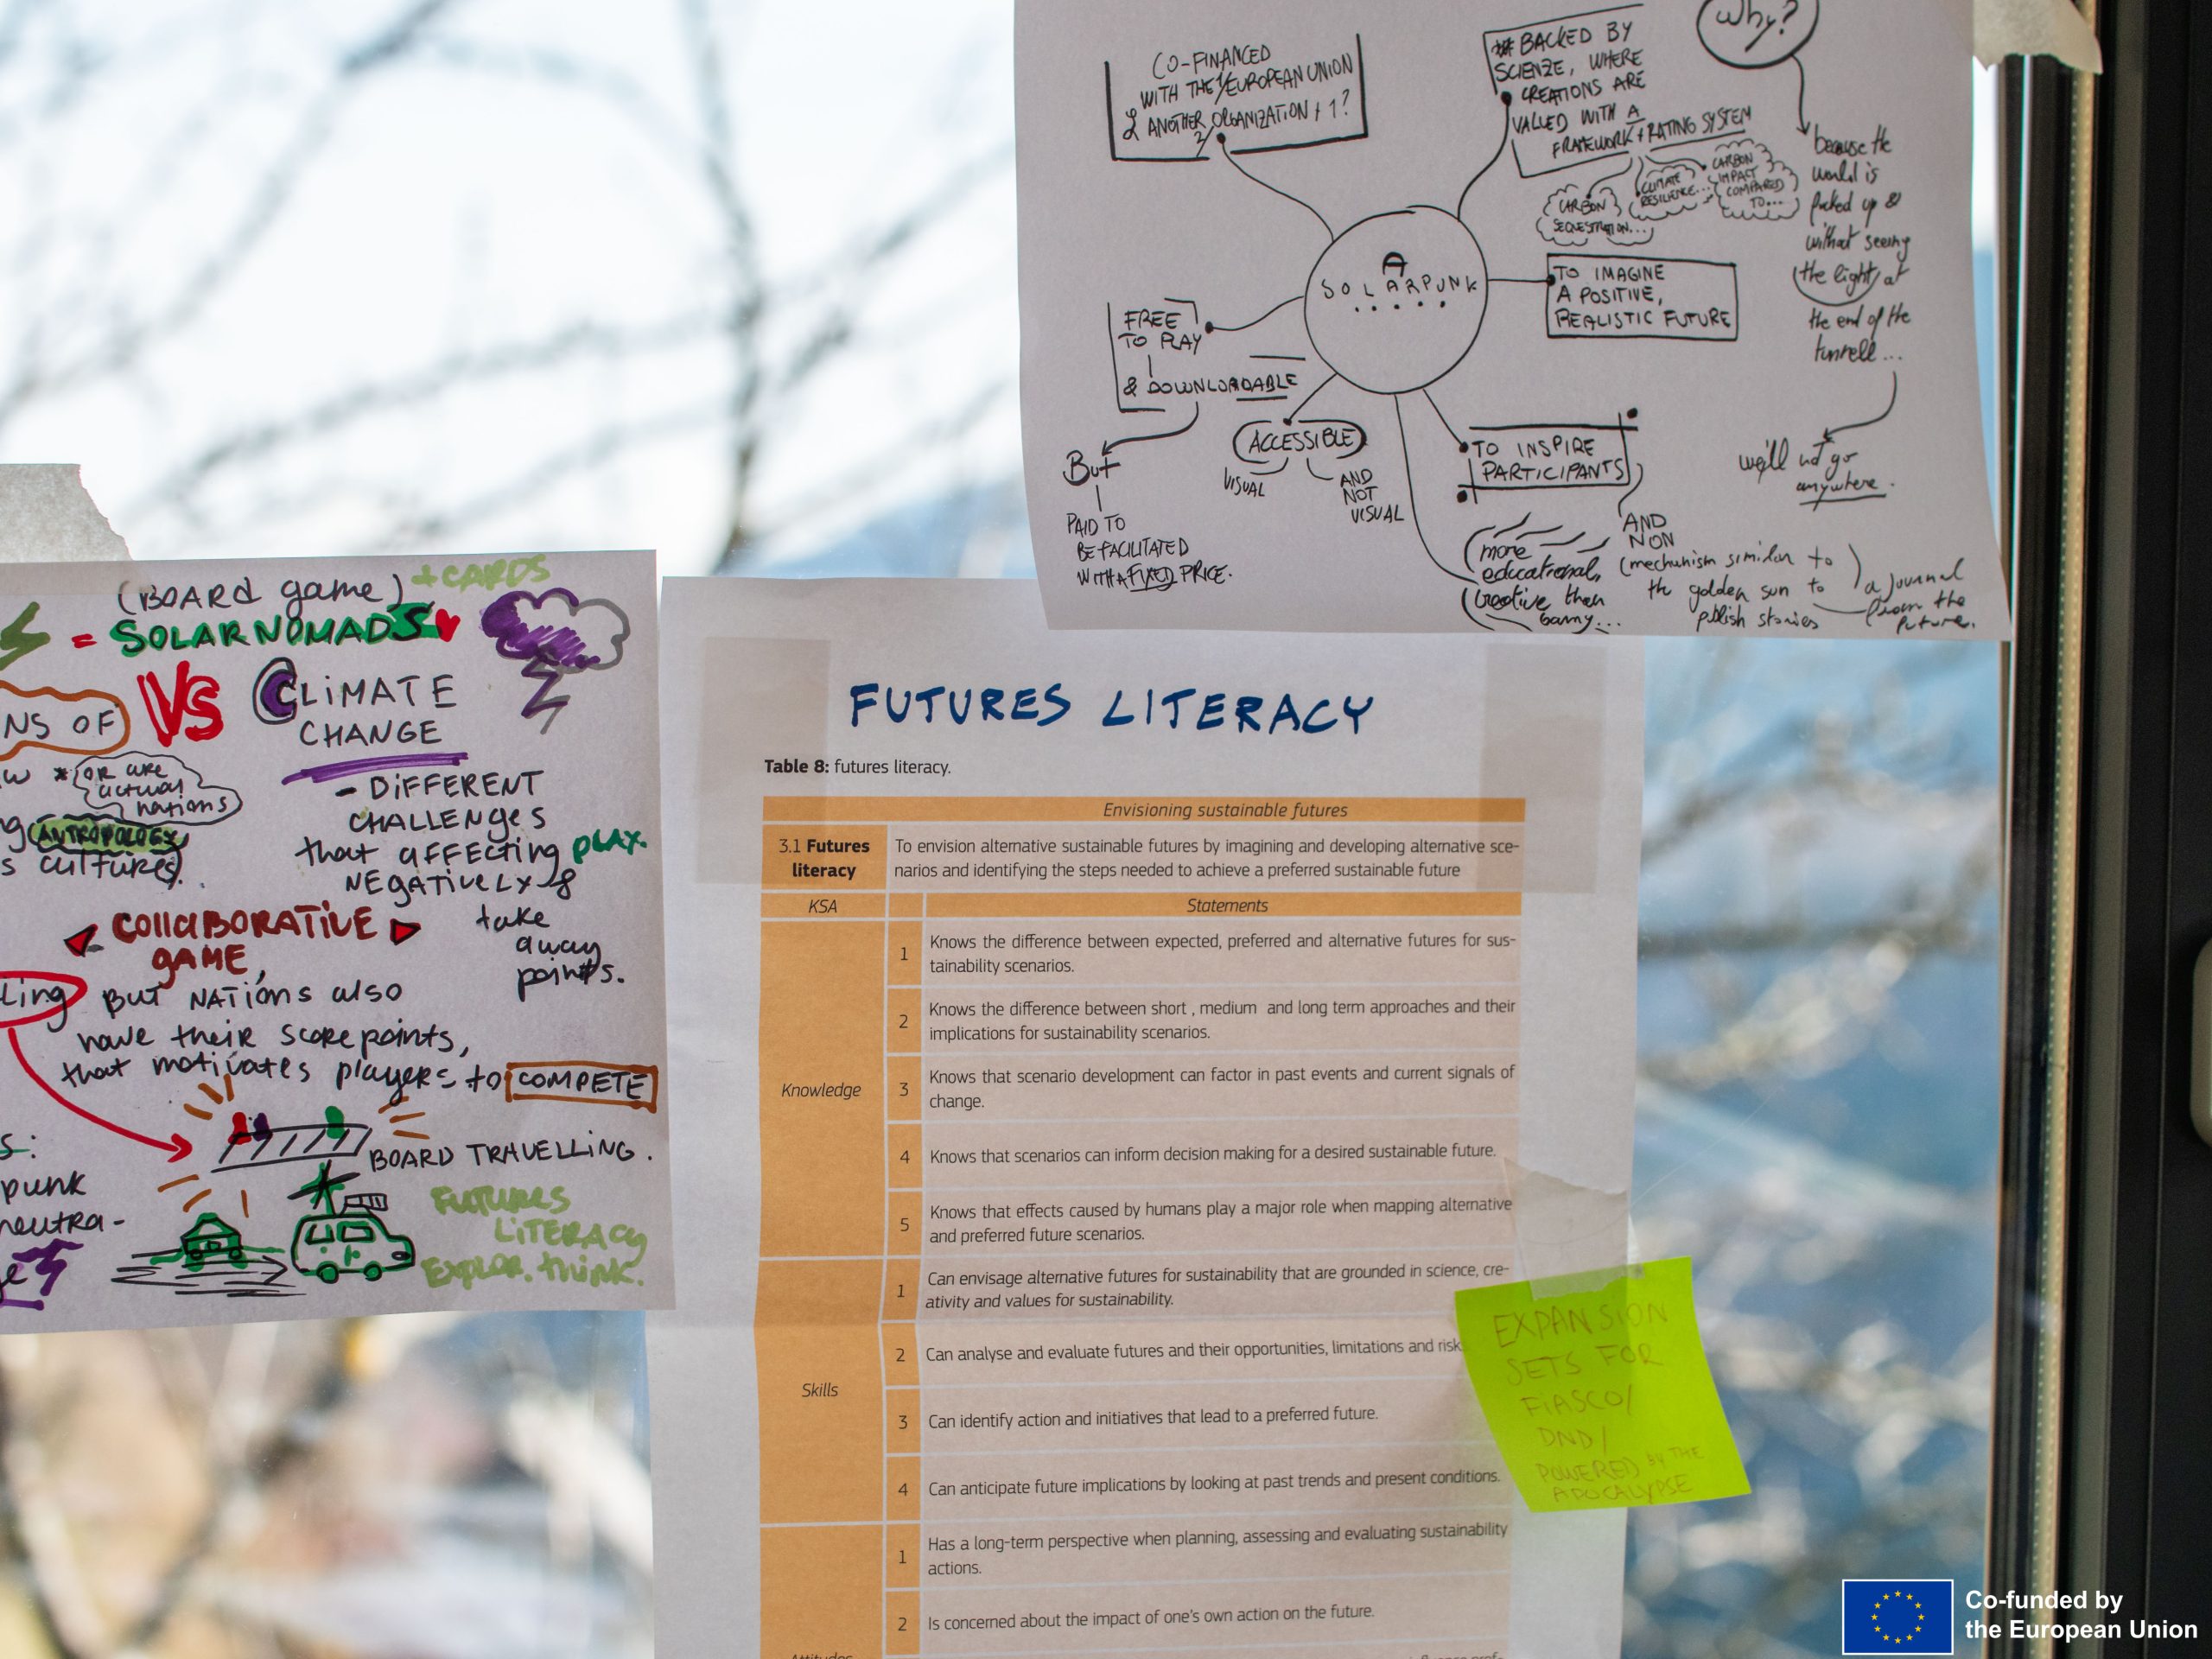 CO-FINANCED
WITH THE EUROPEAN UNION
& ANOTHER ORGANIZATION + 1?
BACKED BY
SCIENZE, WHERE
CREATIONS ARE
VALUED WITH A
FRAMEWORK + RATING SYSTEM
CARBON
SEQUESTRATION...
CLIMATE
RESILIENCE...
CARBON
IMPACT
COMPARED
TO...
Why?
because the
world is
fucked up &
without seeing
the light at
the end of the
tunnell...
we'll not go
anywhere.
A
SOLARPUNK
.....
TO IMAGINE
A POSITIVE,
REALISTIC FUTURE
FREE
TO PLAY
& DOWNLOADABLE
But
PAID TO
BE FACILITATED
WITH A FIXED PRICE.
ACCESSIBLE
VISUAL
AND
NOT
VISUAL
TO INSPIRE
PARTICIPANTS
AND
NON
more
educational,
creative than
gamy...
(mechanism similar to
the golden sun to
publish stories
a journal
from the
future.
(BOARD game) + CARDS
= SOLARNOMADS
NS OF
VS
CLIMATE
CHANGE
* OR are
actual
nations
ANTROPOLOGY
s cultures.
- DIFFERENT
CHALLENGES
that AFFECTING PLAY.
NEGATIVELY &
take
away
points.
COLLABORATIVE
GAME,
ling
BUT NATIONS also
have their score points,
that motivates players to COMPETE
BOARD TRAVELLING.
s:
punk
neutra-
FUTURES
LITERACY
EXPLOR. THINK.
FUTURES LITERACY
Table 8: futures literacy.
Envisioning sustainable futures
3.1 Futures
literacy
To envision alternative sustainable futures by imagining and developing alternative sce-
narios and identifying the steps needed to achieve a preferred sustainable future
KSA
Statements
Knowledge
1
Knows the difference between expected, preferred and alternative futures for sus-
tainability scenarios.
2
Knows the difference between short , medium and long term approaches and their
implications for sustainability scenarios.
3
Knows that scenario development can factor in past events and current signals of
change.
4
Knows that scenarios can inform decision making for a desired sustainable future.
5
Knows that effects caused by humans play a major role when mapping alternative
and preferred future scenarios.
Skills
1
Can envisage alternative futures for sustainability that are grounded in science, cre-
ativity and values for sustainability.
2
Can analyse and evaluate futures and their opportunities, limitations and risk
3
Can identify action and initiatives that lead to a preferred future.
4
Can anticipate future implications by looking at past trends and present conditions.
1
Has a long-term perspective when planning, assessing and evaluating sustainability
actions.
2
Is concerned about the impact of one's own action on the future.
EXPANSION
SETS FOR
FIASCO/
DND/
POWERED BY THE
APOCALYPSE
Co-funded by
the European Union